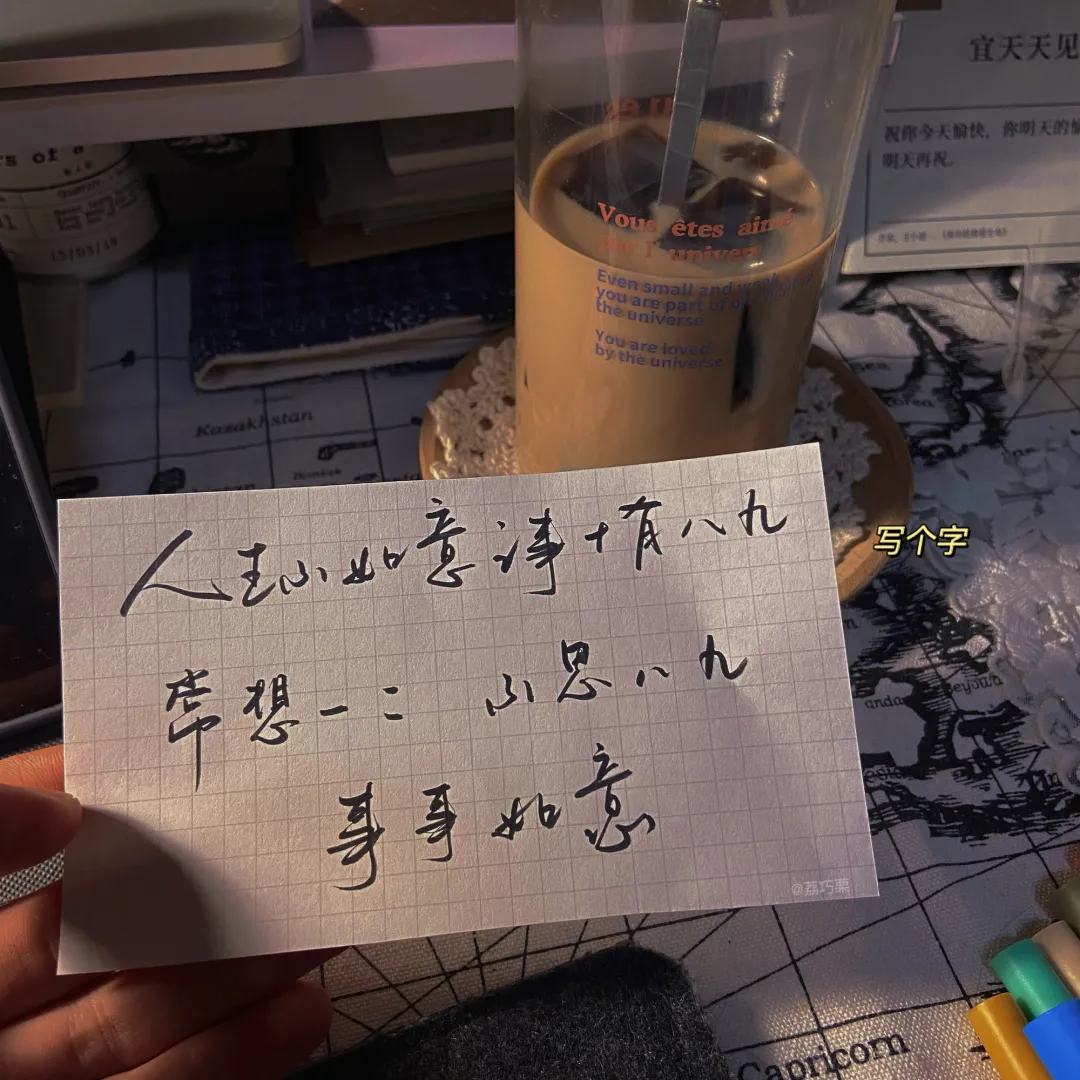 宜天天见
祝你今天愉快，你明天的愉
明天再祝。
15/03/19
Vous êtes aimé
l' univers
Even small and
you are part of
the universe
You are loved
by the universe
Kazakhstan
写个字
人生不如意谆十有八九
常想一二 不思八九
事事如意
@荔巧栗
Capricorn